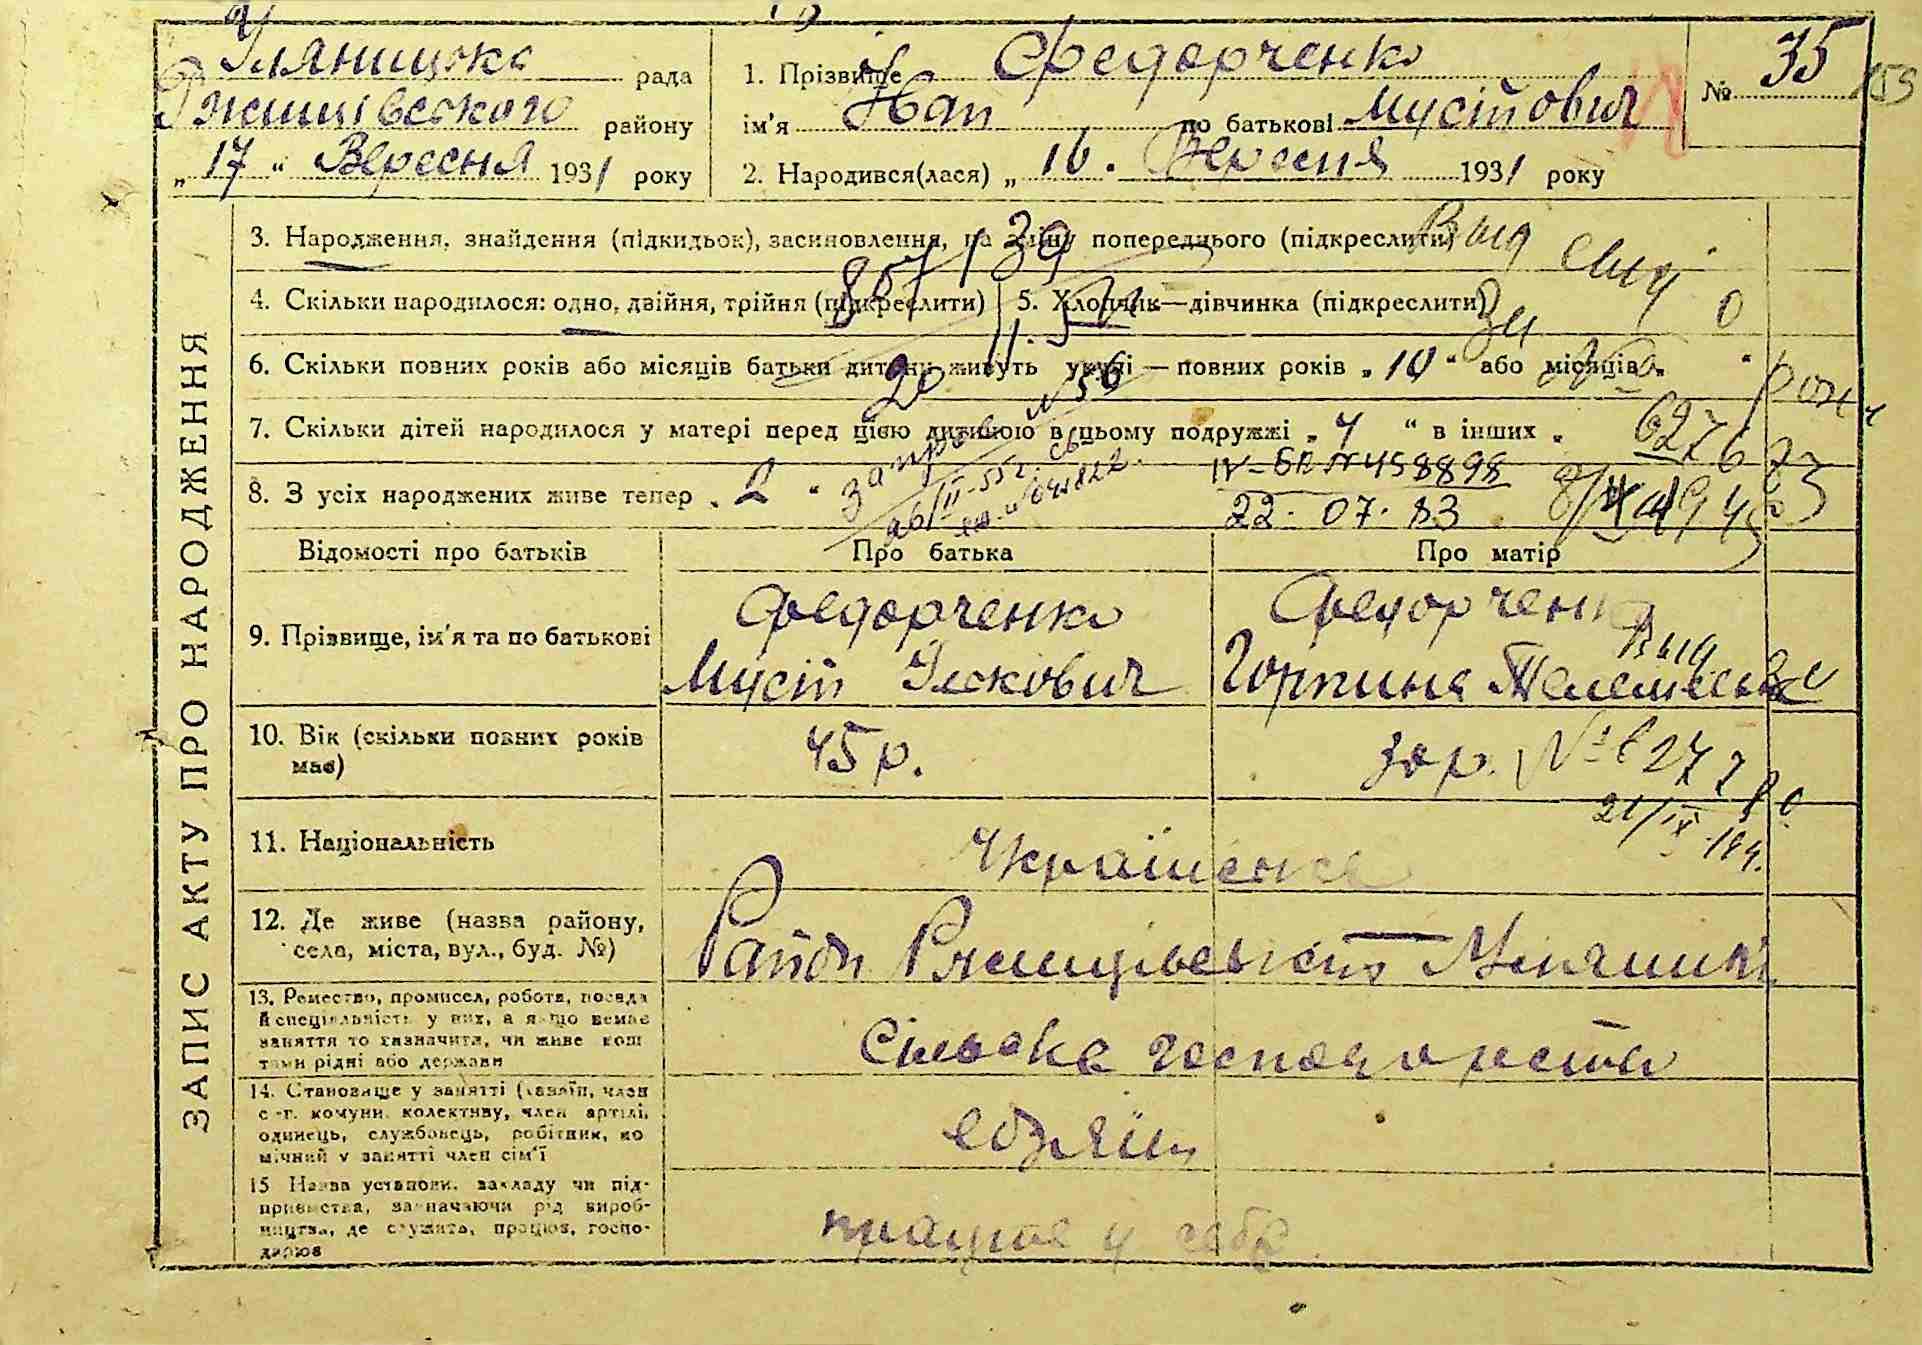 рада
Ржищівського району
„17“ Вересня 1931 року
1. Прізвище Федорченко
ім'я по батькові Мусійович
2. Народився(лася) „16. Вересня 1931 року
№ 35
159
ЗАПИС АКТУ ПРО НАРОДЖЕННЯ
3. Народження, знайдення (підкидьок), засиновлення, на зміну попереднього (підкреслити)
4. Скільки народилося: одно, двійня, трійня (підкреслити)
5. Хлопчик—дівчинка (підкреслити)
6. Скільки повних років або місяців батьки дитини живуть укупі — повних років „10“ або місяців „ “
7. Скільки дітей народилося у матері перед цією дитиною в цьому подружжі „4“ в інших „
8. З усіх народжених живе тепер „2“
IV-БК №458898
22.07.83
Відомості про батьків
Про батька
Про матір
9. Прізвище, ім'я та по батькові
Федорченко
Мусій Іськович
Федорченко
Горпина
10. Вік (скільки повних років має)
45 р.
30 р.
11. Національність
Українське
12. Де живе (назва району, села, міста, вул., буд. №)
Район Ржищівський
13. Ремество, промисел, робота, посада й спеціяльність у них, а якщо немає заняття то зазначити, чи живе коштами рідні або держави
Сільське господарство
14. Становище у занятті (хазяїн, член с.-г. комуни, колективу, член артілі, одинець, службовець, робітник, помічний у занятті член сім'ї
15 Назва установи, закладу чи підприємства, зазначаючи рід виробництва, де служить, працює, господарює
працює у себе